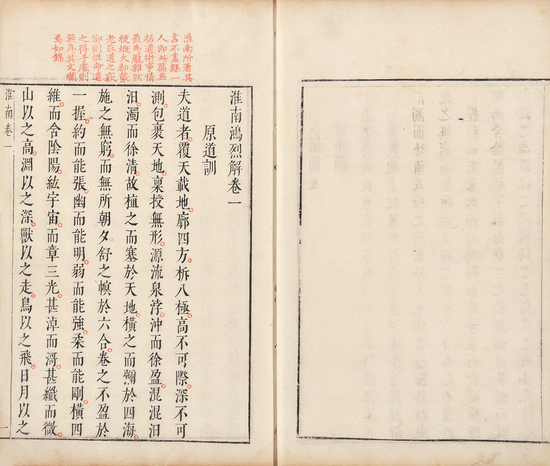 淮南所著其
言不盡縣一
人即此篇無
括道術事情
最為龐雜然
梗概大都襲
老莊道之
則性命道
之得手處則
無為其文爛
焉如錦
淮南鴻烈解卷一
原道訓
夫道者覆天載地廓四方柝八極高不可際深不可
測包裹天地稟授無形源流泉浡沖而徐盈混混汩
汩濁而徐清故植之而塞於天地橫之而彌於四海
施之無窮而無所朝夕舒之幎於六合卷之不盈於
一握約而能張幽而能明弱而能強柔而能剛橫四
維而含陰陽紘宇宙而章三光甚淖而滒甚纖而微
山以之高淵以之深獸以之走鳥以之飛日月以之
淮南卷一
一